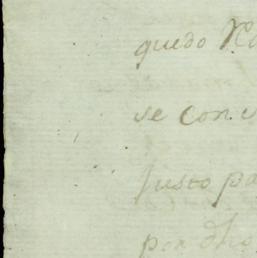 quedo
se con
Justo pa
por dho